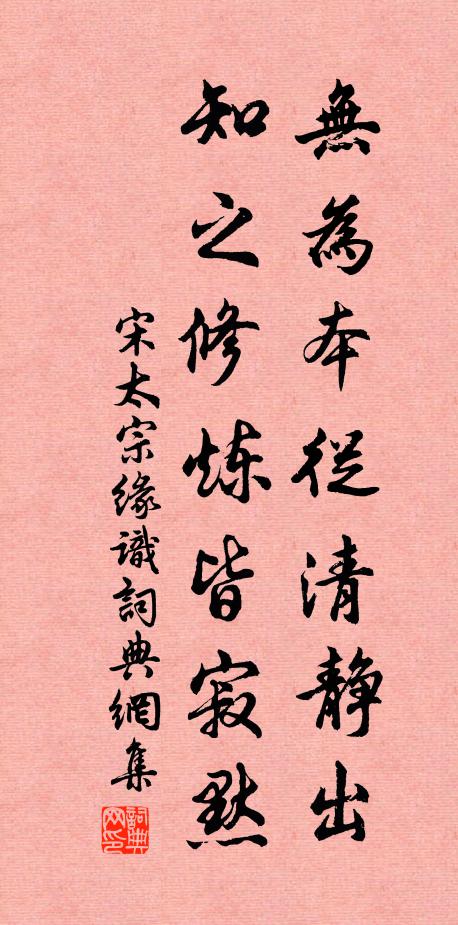 無為本從清静出
知之修炼皆寂默
宋太宗緣識詞典網集
詞典网印